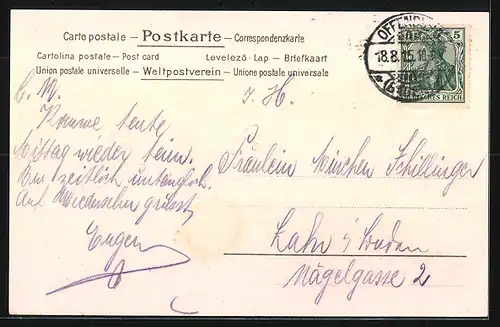 Carte postale – Postkarte – Correspondenzkarte
Cartolina postale – Post card Levelező-Lap – Briefkaart
Union postale universelle – Weltpostverein – Unione postale universale
OFFENBURG
18.8.05.
5
DEUTSCHES REICH
L. M.
Komme heute
Mittag wieder heim.
Bin zeitlich
Auf Wiedersehn grüsst
Eugen
I. H.
Fräulein Minchen Schillinger
Lahr i/ Baden
Nägelgasse 2